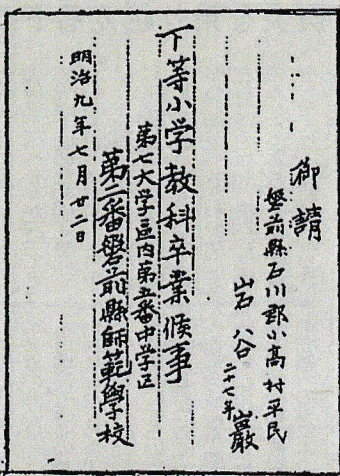 御請
磐前縣石川郡小高村平民
岩谷巖
二十七年
下等小学教科卒業候事
第七大学區内第五番中学区
第一番磐前縣師範學校
明治九年七月廿二日